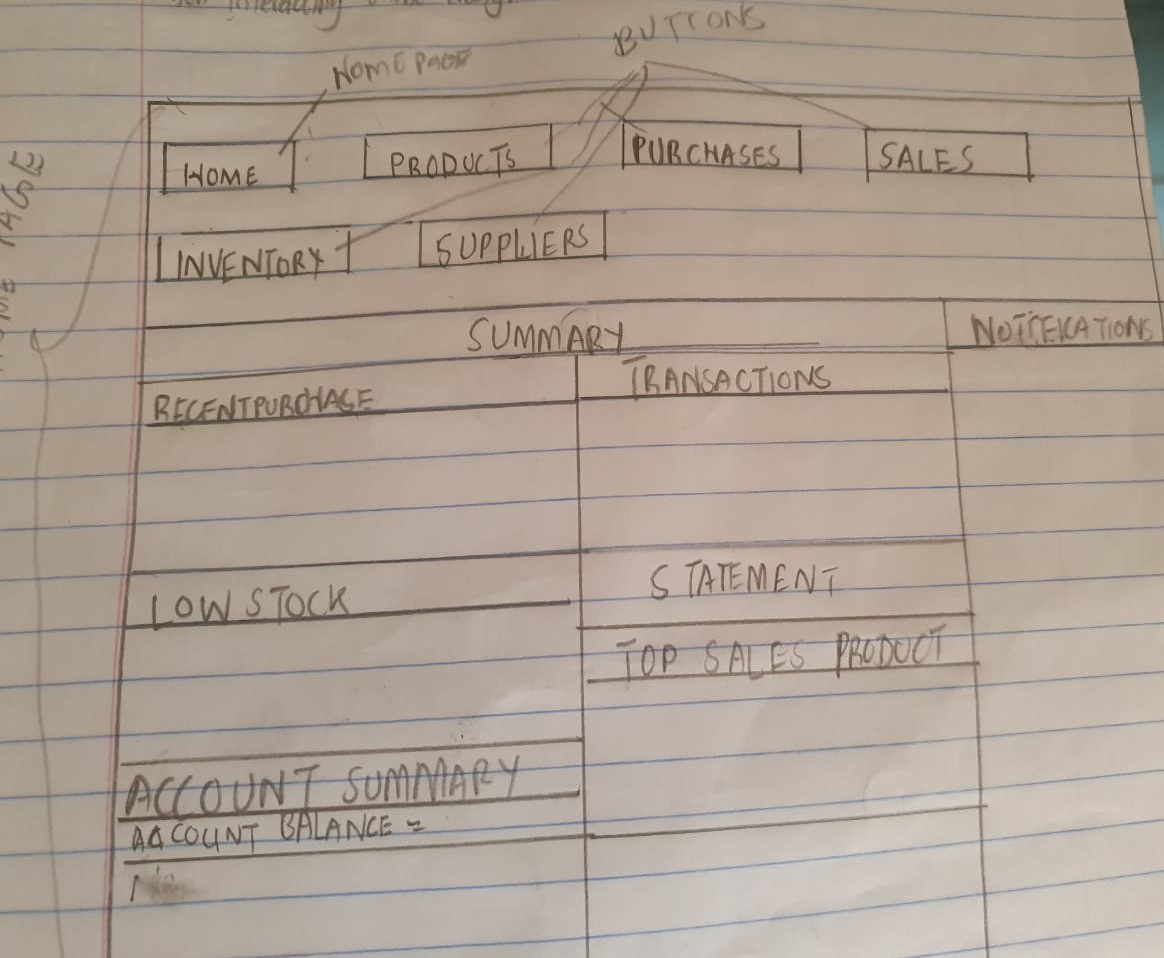 interacting
BUTTONS
HOMEPAGE
HOME PRODUCTS PURCHASES SALES
INVENTORY SUPPLIERS
SUMMARY NOTIFICATIONS
RECENT PURCHASE TRANSACTIONS
LOW STOCK STATEMENT
TOP SALES PRODUCT
ACCOUNT SUMMARY
ACCOUNT BALANCE =
HOME PAGE